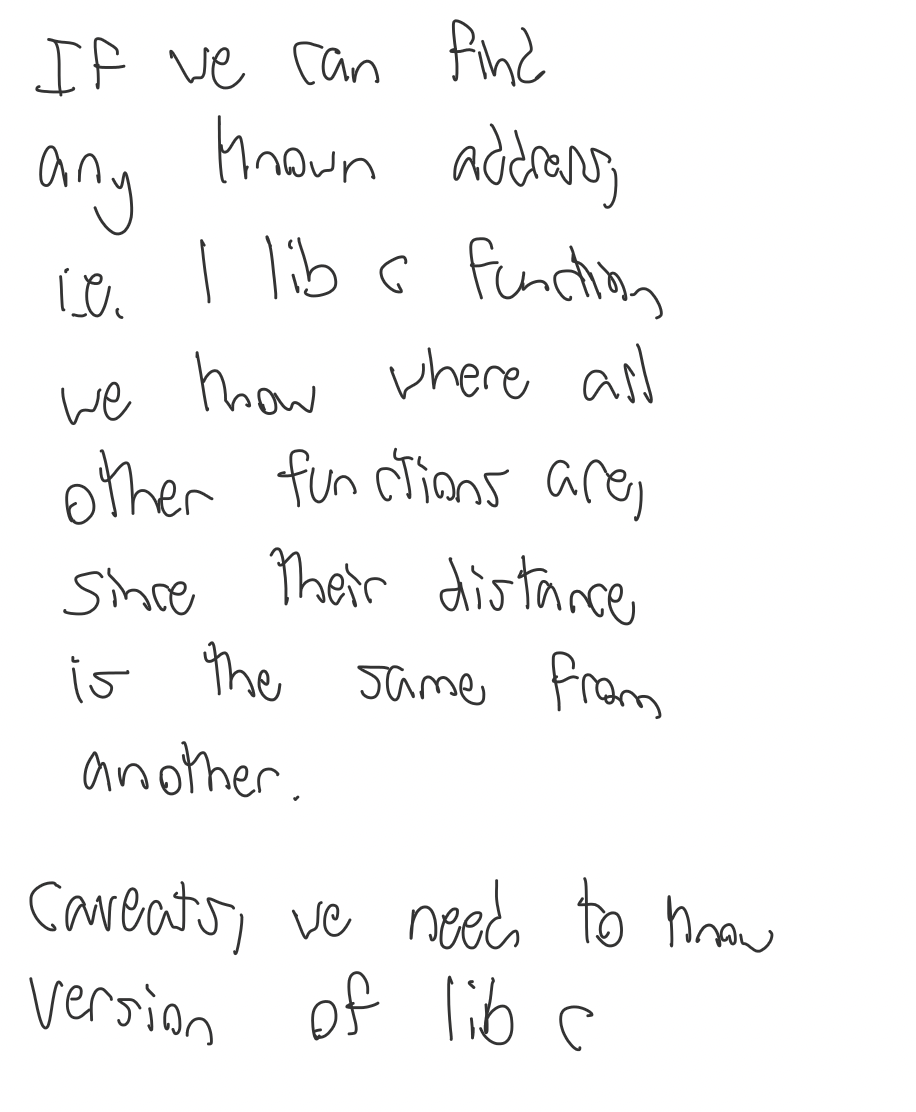 If we can find
any known address,
i.e. 1 lib c function,
we know where all
other functions are,
since their distance
is the same from
another.
Caveats, we need to know
version of lib c